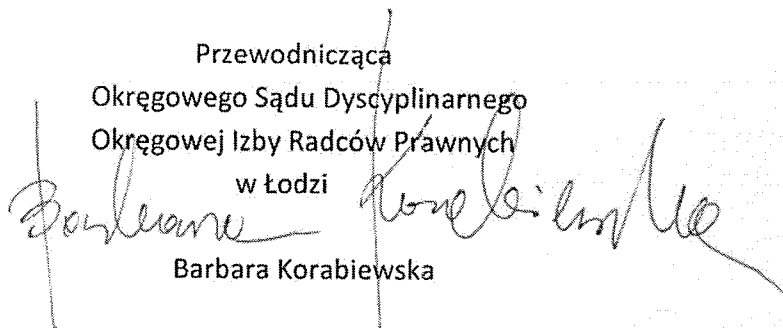 Przewodnicząca
Okręgowego Sądu Dyscyplinarnego
Okręgowej Izby Radców Prawnych
w Łodzi
Barbara Korabiewska
Barbara Korabiewska